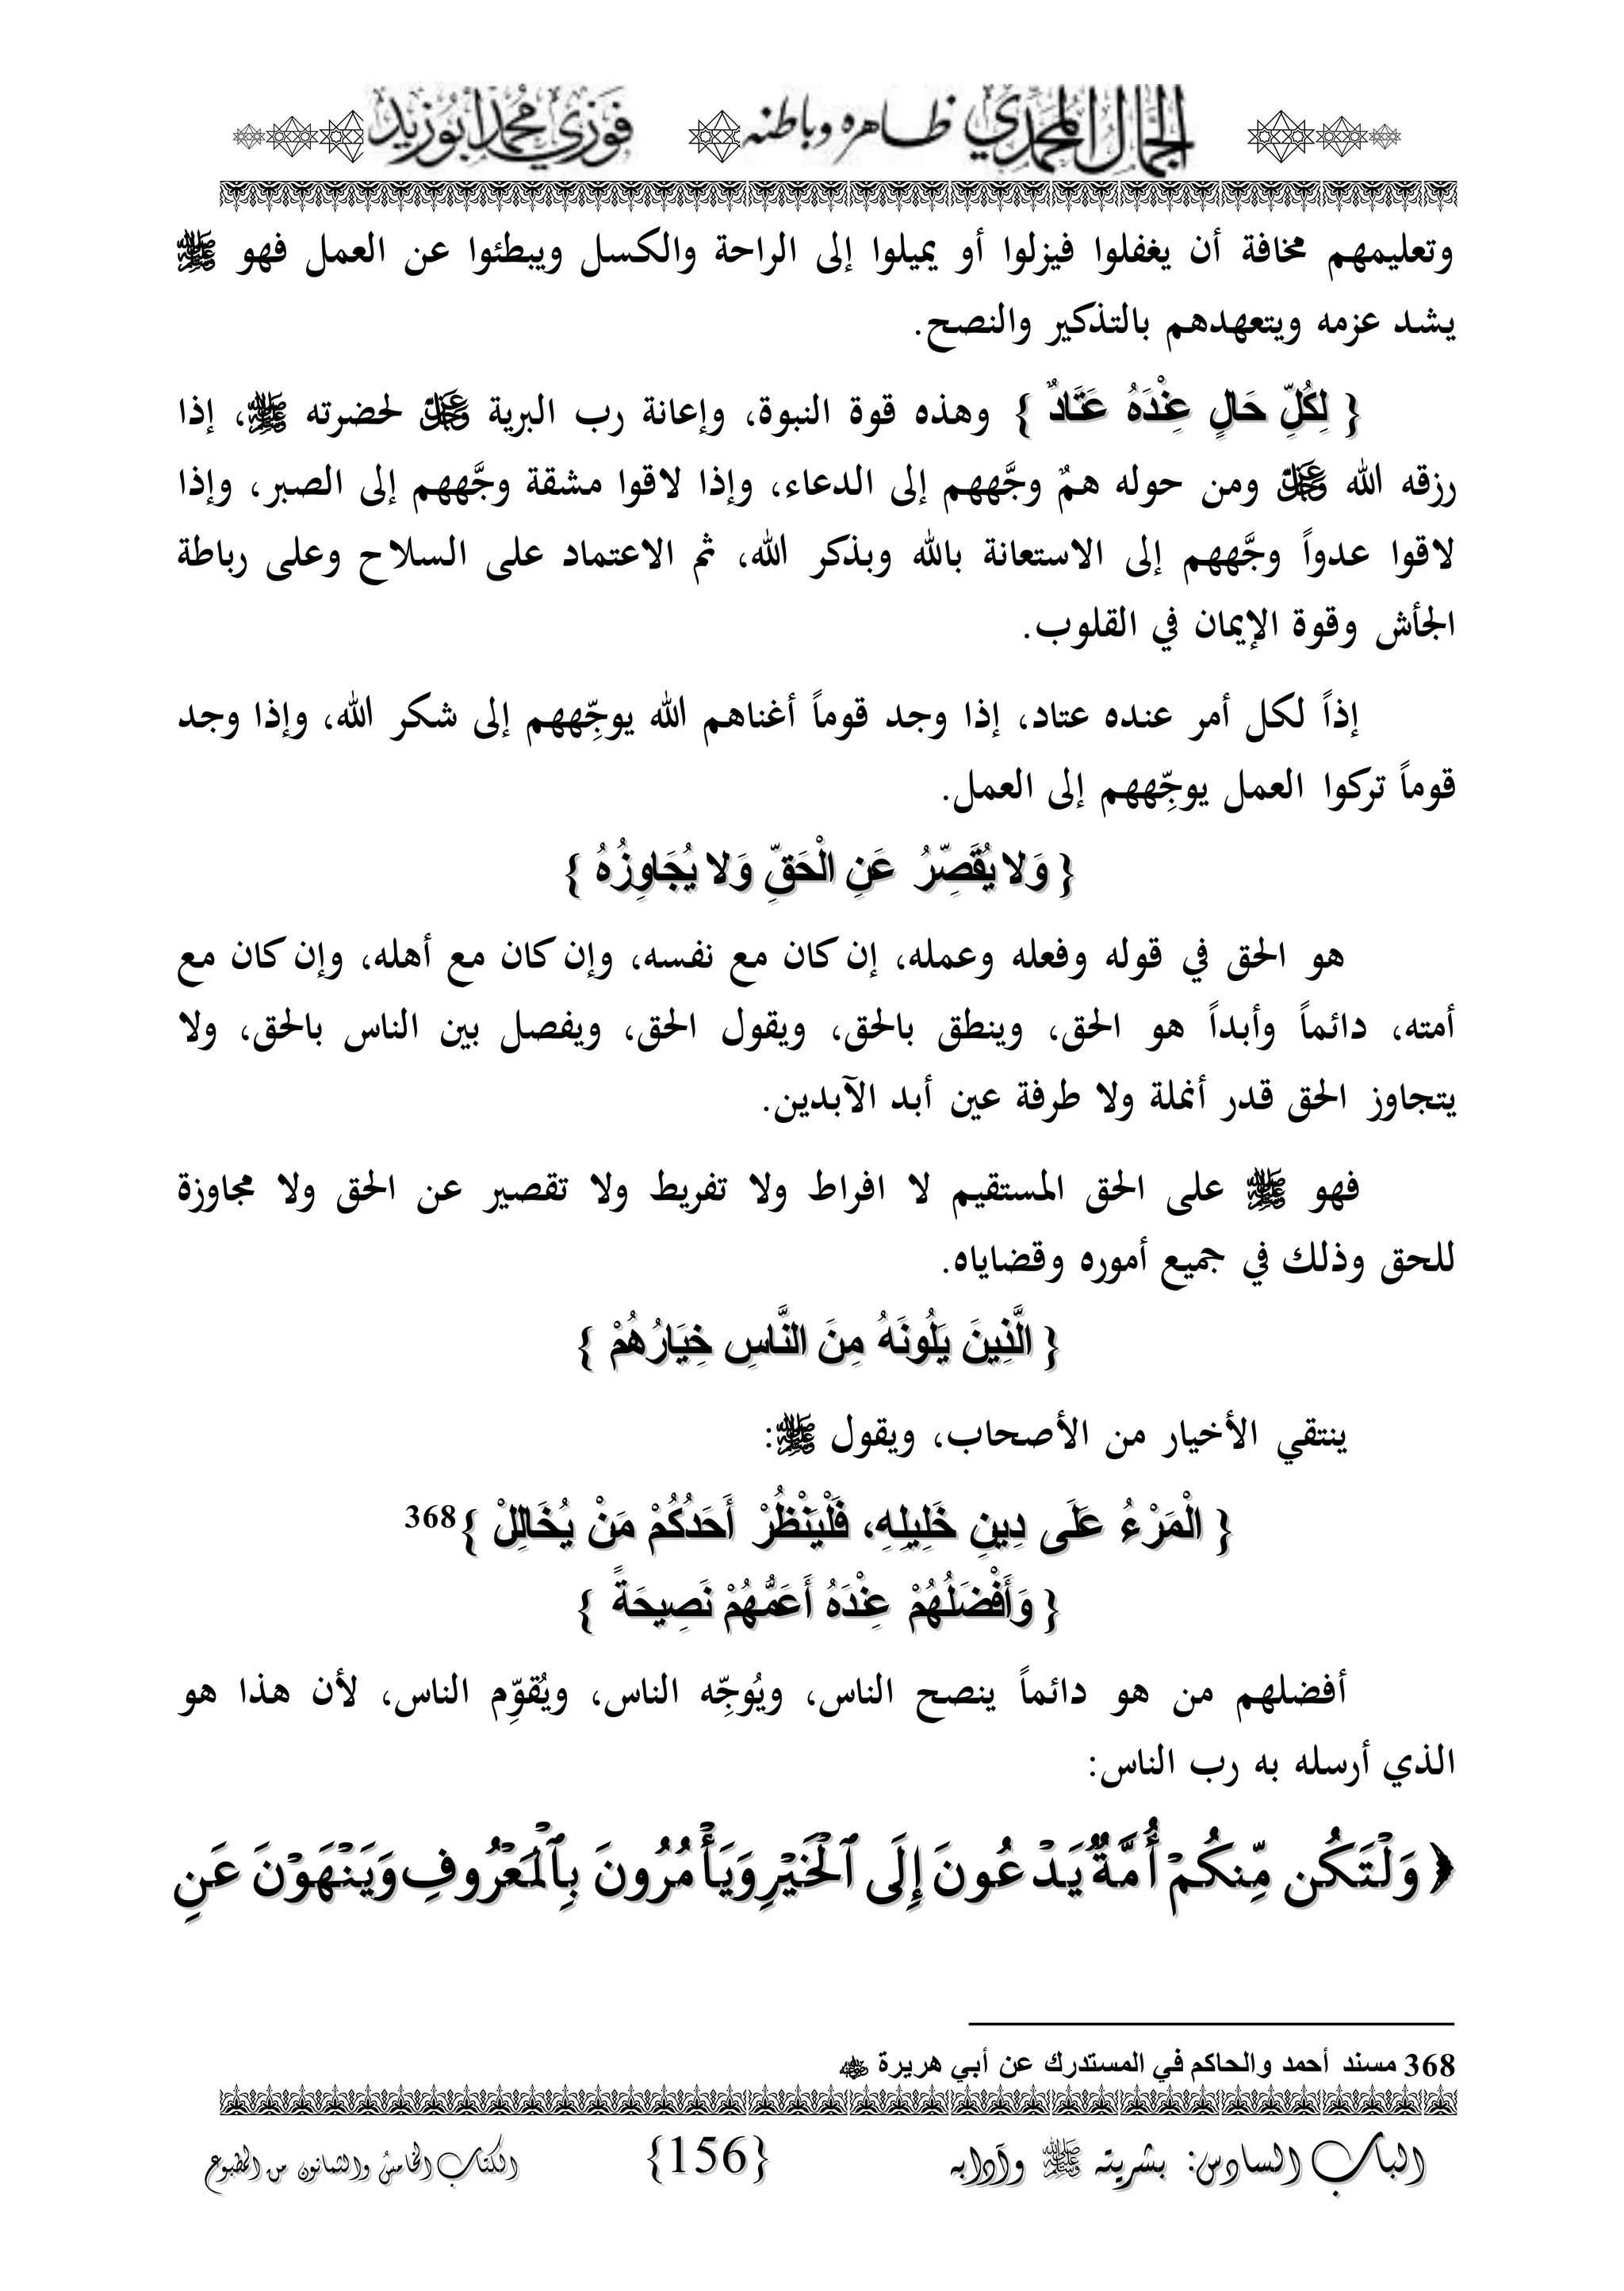 الجمال المحمدي ظاهره وباطنه فوزي محمد أبوزيد
وتعليمهم مخافة أن يغفلوا فيزلوا أو يميلوا إلى الراحة والكسل ويبطئوا عن العمل فهو ﷺ
يشد عزمه ويتعهدهم بالتذكير والنصح.
{ لِكُلِّ حَالٍ عِنْدَهُ عَتَادٌ } وهذه قوة النبوة، وإعانة رب البرية عز وجل لحضرته ﷺ، إذا
رزقه الله عز وجل ومن حوله همٌ وجَّههم إلى الدعاء، وإذا لاقوا مشقة وجَّههم إلى الصبر، وإذا
لاقوا عدواً وجَّههم إلى الاستعانة بالله وبذكر الله، ثم الاعتماد على السلاح وعلى رباطة
الجأش وقوة الإيمان في القلوب.
إذاً لكل أمر عنده عتاد، إذا وجد قوماً أغناهم الله يوجِّههم إلى شكر الله، وإذا وجد
قوماً تركوا العمل يوجِّههم إلى العمل.
{ وَلا يُقَصِّرُ عَنِ الْحَقِّ وَلا يُجَاوِزُهُ }
هو الحق في قوله وفعله وعمله، إن كان مع نفسه، وإن كان مع أهله، وإن كان مع
أمته، دائماً وأبداً هو الحق، وينطق بالحق، ويقول الحق، ويفصل بين الناس بالحق، ولا
يتجاوز الحق قدر أنملة ولا طرفة عين أبد الآبدين.
فهو ﷺ على الحق المستقيم لا افراط ولا تفريط ولا تقصير عن الحق ولا مجاوزة
للحق وذلك في جميع أموره وقضاياه.
{ الَّذِينَ يَلُونَهُ مِنَ النَّاسِ خِيَارُهُمْ }
ينتقي الأخيار من الأصحاب، ويقول ﷺ:
{ الْمَرْءُ عَلَى دِينِ خَلِيلِهِ، فَلْيَنْظُرْ أَحَدُكُمْ مَنْ يُخَالِلْ }368
{ وَأَفْضَلُهُمْ عِنْدَهُ أَعَمُّهُمْ نَصِيحَةً }
أفضلهم من هو دائماً ينصح الناس، ويُوجِّه الناس، ويُقوِّم الناس، لأن هذا هو
الذي أرسله به رب الناس:
﴿ وَلْتَكُن مِّنكُمْ أُمَّةٌ يَدْعُونَ إِلَى ٱلْخَيْرِ وَيَأْمُرُونَ بِٱلْمَعْرُوفِ وَيَنْهَوْنَ عَنِ
368 مسند أحمد والحاكم في المستدرك عن أبي هريرة
الباب السادس: بشريته ﷺ وآدابه {156} الكتاب الخامس والثمانون من المطبوع